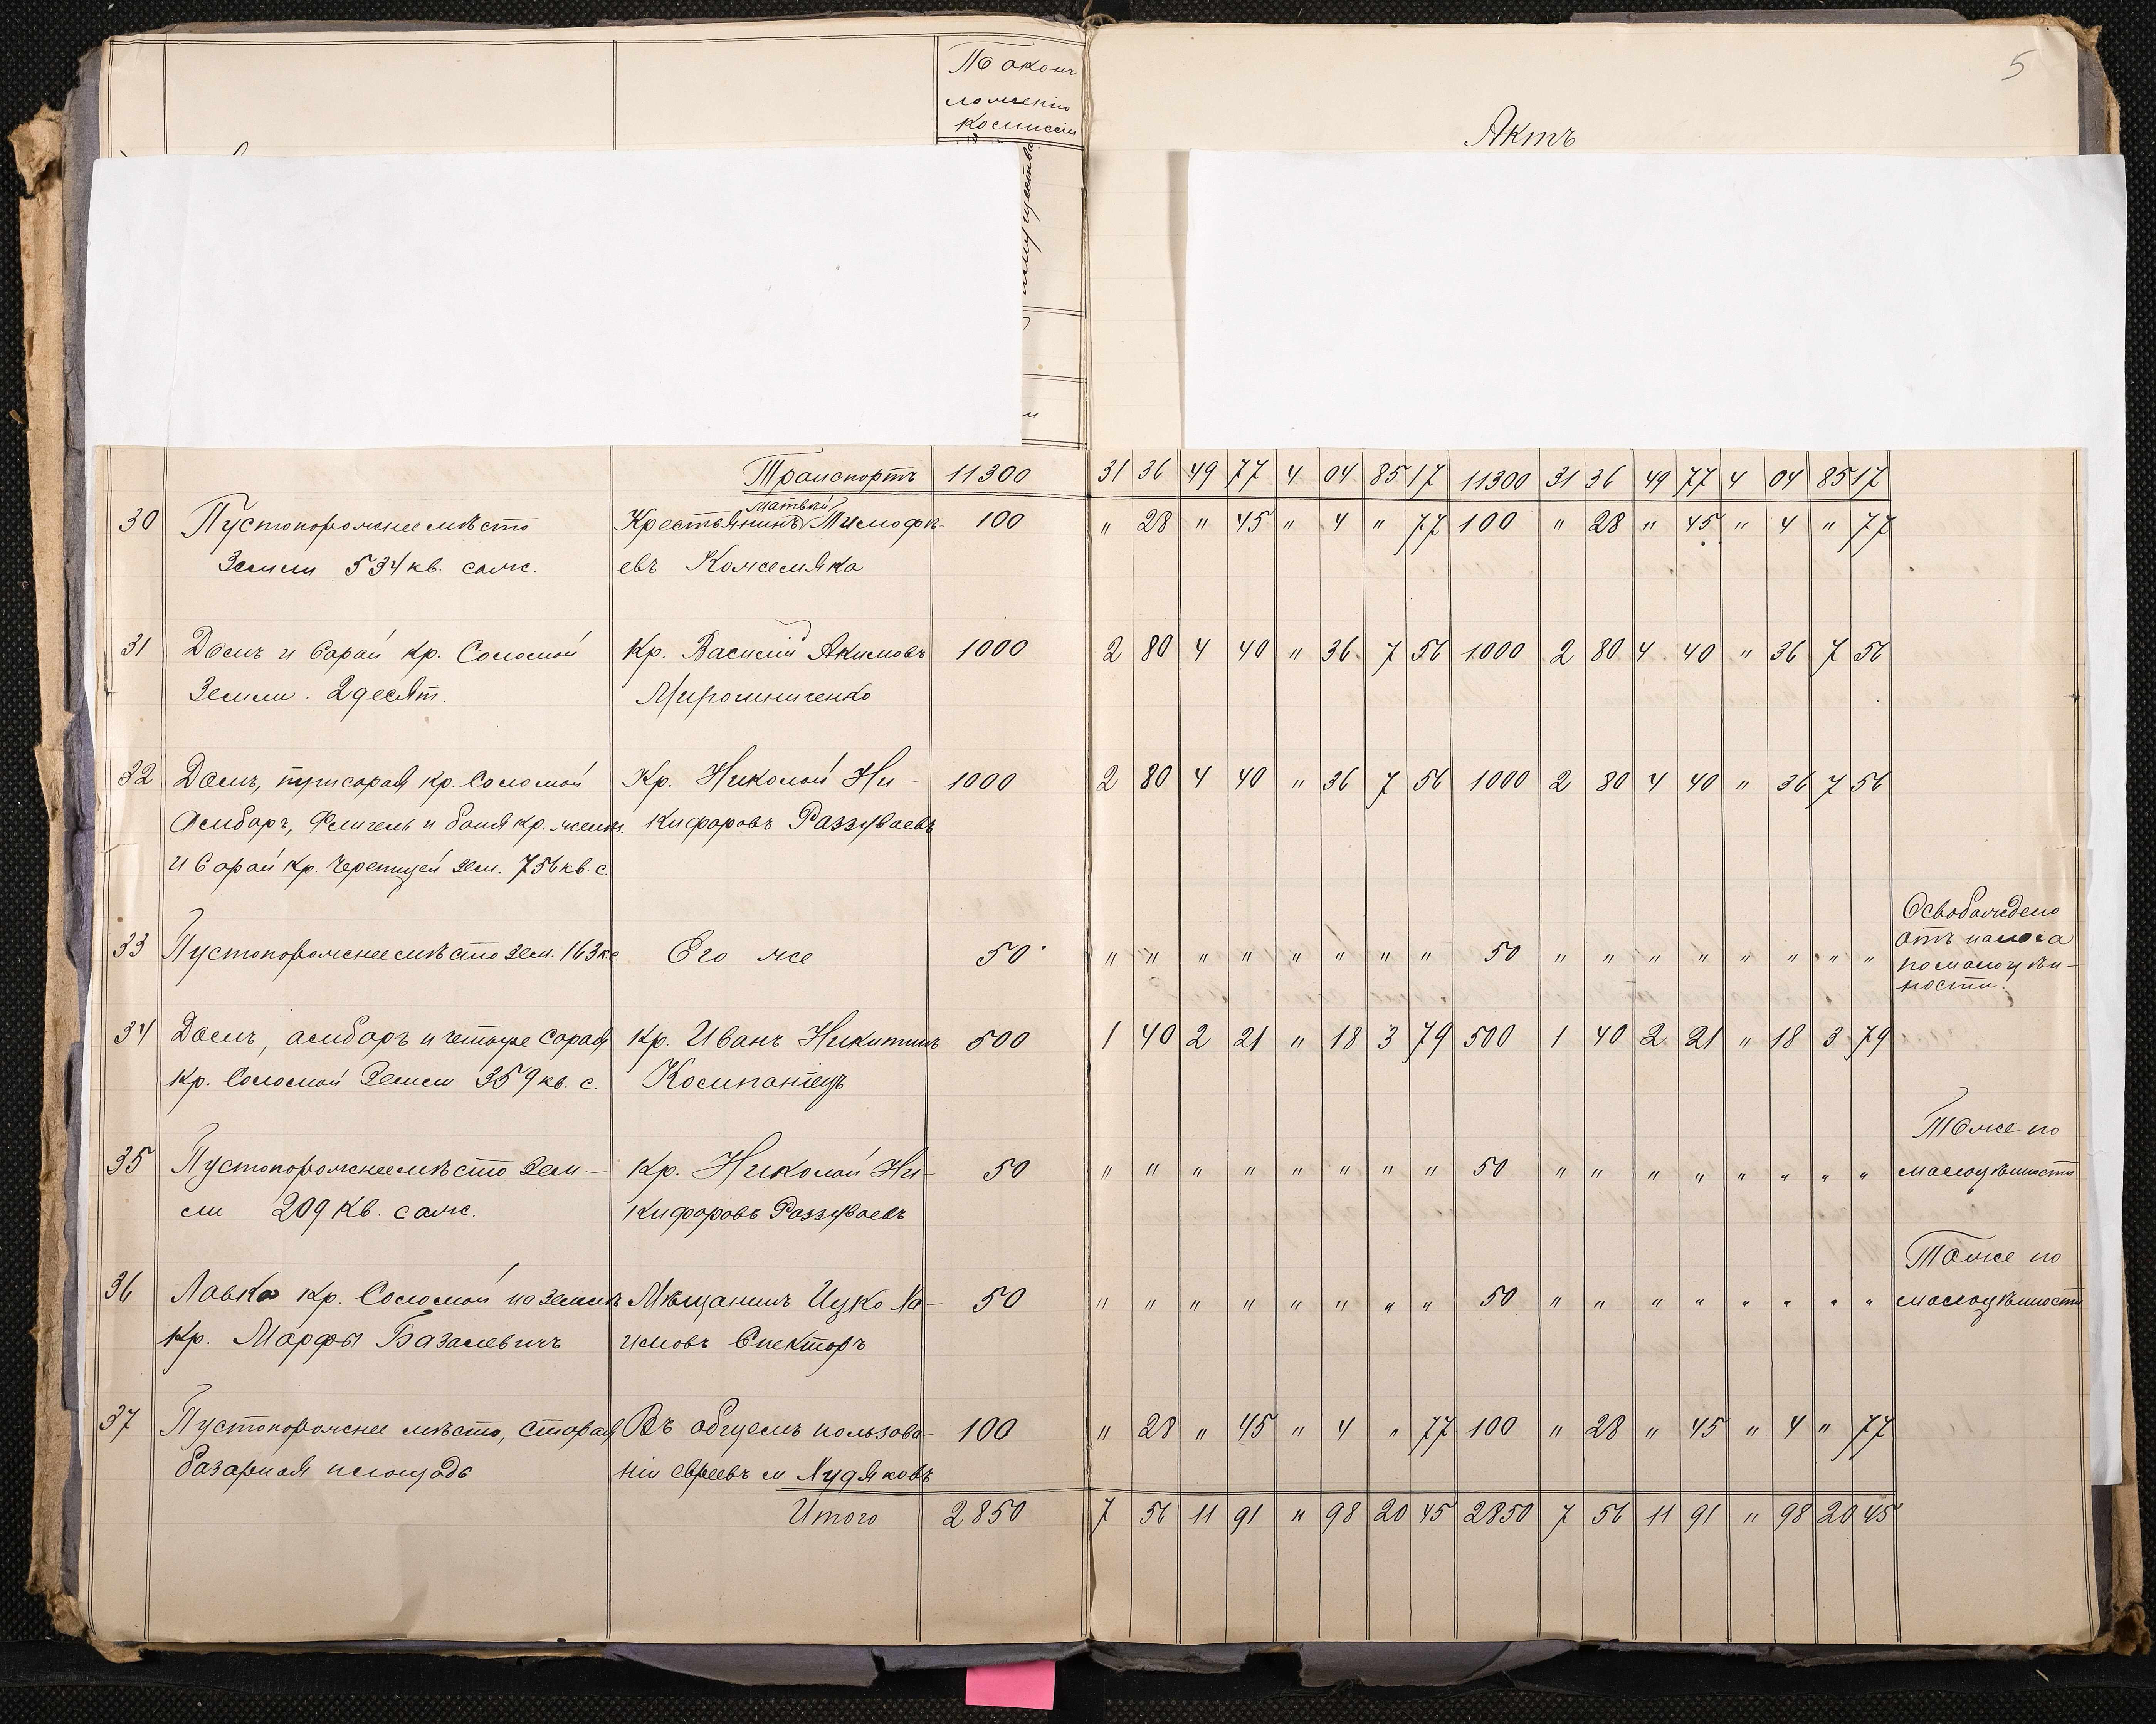 5
Актъ
ложенію
коммисіи
имущества
Транспортъ 11300 31 36 49 77 4 04 85 17 11300 31 36 49 77 4 04 85 17
Матвѣй
30 Пустопорожнее мѣсто Крестьянинъ Тимофѣ- 100 " 28 " 45 " 4 " 77 100 " 28 " 45 " 4 " 77
Земли 534 кв. саж. евъ Кожемяка
31 Домъ и Сарай кр. Соломой Кр. Василій Акимовъ 1000 2 80 4 40 " 36 7 56 1000 2 80 4 40 " 36 7 56
Земли. 2 десят. Мирошниченко
32 Домъ, три сарая кр. Соломой Кр. Николай Ни- 1000 2 80 4 40 " 36 7 56 1000 2 80 4 40 " 36 7 56
Амбаръ, Флигель и баня кр. желѣз. кифоровъ Раззуваевъ
и Сарай кр. Черепицей зем. 756 кв. с.
Освобождено
33 Пустопорожнее мѣсто зем. 163 к.с. Его же 50 " " " " " " " " 50 " " " " " " " " отъ налога
по малоцѣн-
ности.
34 Домъ, амбаръ и четыре Сарая Кр. Иванъ Никитинъ 500 1 40 2 21 " 18 3 79 500 1 40 2 21 " 18 3 79
кр. Соломой Земли 359 кв. с. Компанецъ
Тоже по
35 Пустопорожнее мѣсто Зем- Кр. Николай Ни- 50 " " " " " " " " 50 " " " " " " " " малоцѣнности
ли 209 кв. саж. кифоровъ Раззуваевъ
Тоже по
36 Лавка кр. Соломой на землѣ Мѣщанинъ Ицко На- 50 " " " " " " " " 50 " " " " " " " " малоцѣнности
Кр. Марфы Базалевичъ имовъ Спекторъ
37 Пустопорожнее мѣсто, старая Въ общемъ пользова- 100 " 28 " 45 " 4 " 77 100 " 28 " 45 " 4 " 77
базарная площадь ніи евреевъ м. Худяковъ
Итого 2850 7 56 11 91 " 98 20 45 2850 7 56 11 91 " 98 20 45